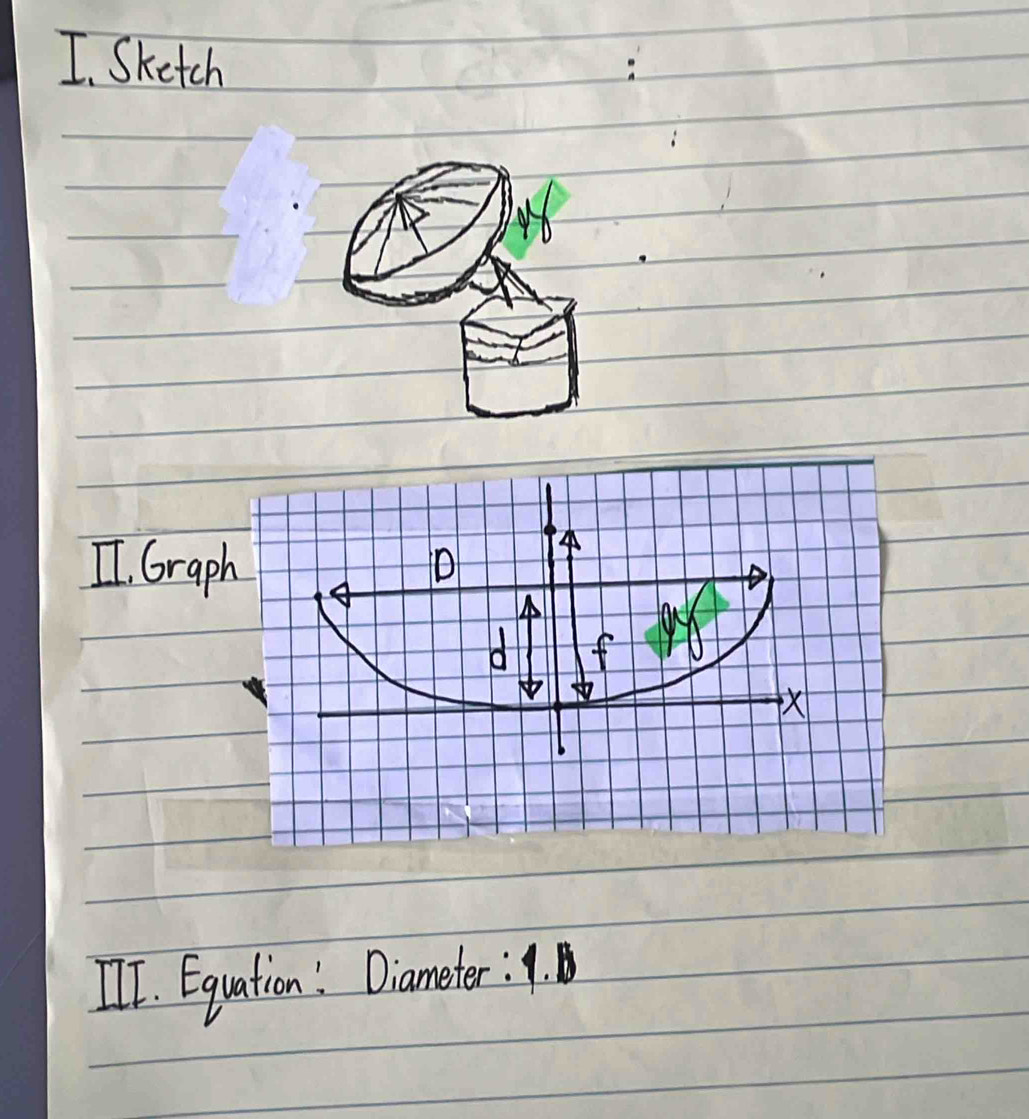 I. Sketch :
II. Graph
D
d
f
X
III. Equation: Diameter: